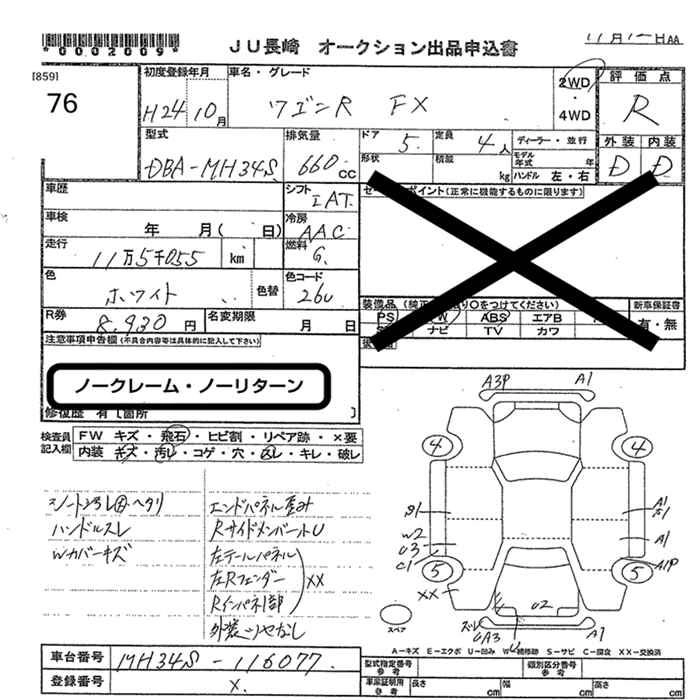 *0002009*
JU長崎 オークション出品申込書
11月12日AA
[859]
76
初度登録年月
H24 10月
車名・グレード
ワゴンR FX
2WD
・
4WD
評価点
R
外装 内装
D D
型式
DBA-MH34S
排気量
660cc
ドア 5
定員 4人
ディーラー・並行
形状
積載 kg
モデル年式 年
ハンドル 左・右
車歴
シフト IAT
セールスポイント(正常に機能するものに限ります)
車検 年 月( 日)
冷房 AAC
走行 11万5千055 km
燃料 G
色 ホワイト 色替
色コード 26U
R券 8,930円
名変期限 月 日
装備品 (純正 〇をつけてください)
新車保証書
有・無
PS PW ABS エアB
ナビ TV カワ
注意事項申告欄(不具合内容等は具体的に記入して下さい)
ノークレーム・ノーリターン
修復歴 有〔箇所 〕
検査員記入欄
FW キズ・飛石・ヒビ割・リペア跡・×要
内装 キズ・汚レ・コゲ・穴・凹レ・キレ・破レ
シート汚レ ヘタリ
ハンドルスレ
Wカバーキズ
エンドパネル歪み
RサイドメンバートU
左テールパネル
左Rフェンダー
Rインパネ1部
XX
A3P A1
4 4
B1
W2
U3
C1
A1
B1
A1
5 5
A1P
XX
U2
スレ
UA3
U
A1
スペア
A-キズ E-エクボ U-凹み W-補修跡 S-サビ C-腐食 XX-交換済
車台番号 MH34S-116077
登録番号 X
型式指定番号 参考
類別区分番号 参考
車庫証明用 参考
長さ cm
幅 cm
高さ cm